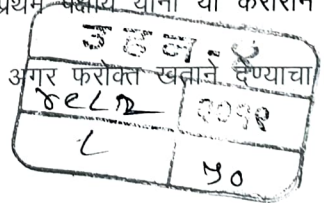 प्रथम पक्षीय यांनी या करारान
उहन-४
अगर फरोक्त खताने देण्याचा
२०११
८ ५०